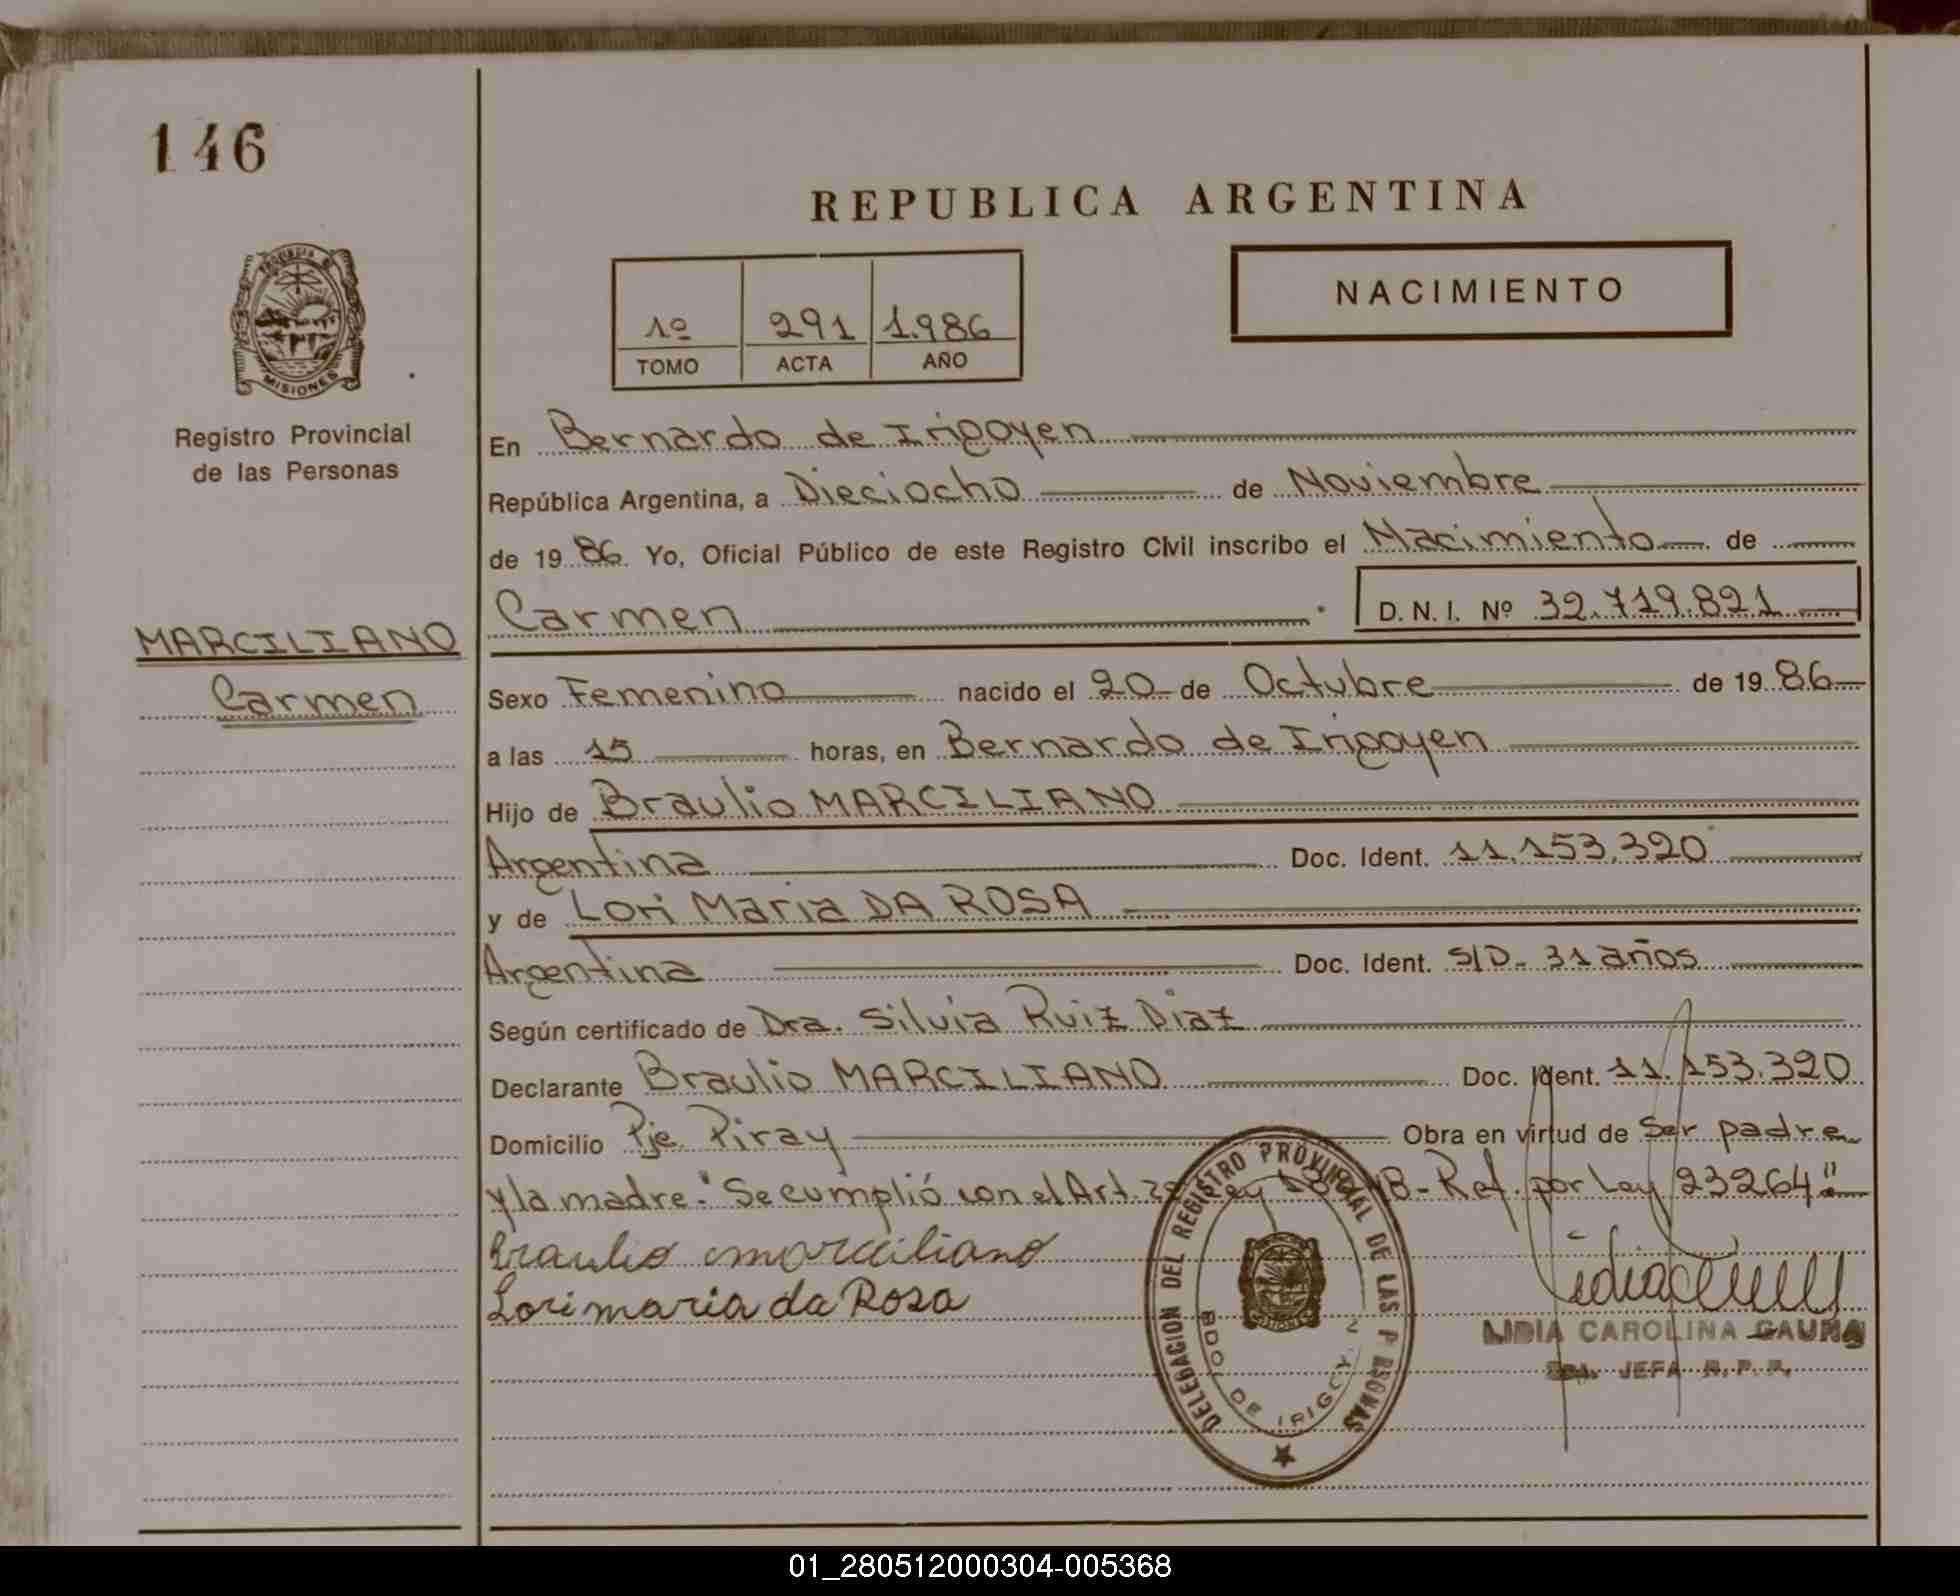 146
REPUBLICA ARGENTINA
PROVINCIA DE
MISIONES
Registro Provincial
de las Personas
1º 291 1.986
TOMO ACTA AÑO
NACIMIENTO
MARCILIANO
Carmen
En Bernardo de Irigoyen
República Argentina, a Dieciocho de Noviembre
de 19 86. Yo, Oficial Público de este Registro Civil inscribo el Nacimiento de
Carmen . D. N. I. Nº 32.719.821
Sexo Femenino nacido el 20 de Octubre de 19 86
a las 15 horas, en Bernardo de Irigoyen
Hijo de Braulio MARCILIANO
Argentina Doc. Ident. 11.153.320
y de Lori Maria DA ROSA
Argentina Doc. Ident. S/D- 31 años
Según certificado de Dra. Silvia Ruiz Diaz
Declarante Braulio MARCILIANO Doc. Ident. 11.153.320
Domicilio Pje. Piray Obra en virtud de Ser padre
y la madre. "Se cumplió con el Art. Ley - Ref. por Ley 23264"
Braulio marciliano
Lori maria da Rosa
DELEGACION DEL REGISTRO PROVINCIAL DE LAS PERSONAS
BDO. DE IRIGOYEN
LIDIA CAROLINA GAUNA
JEFA R. P. P.
01_280512000304-005368